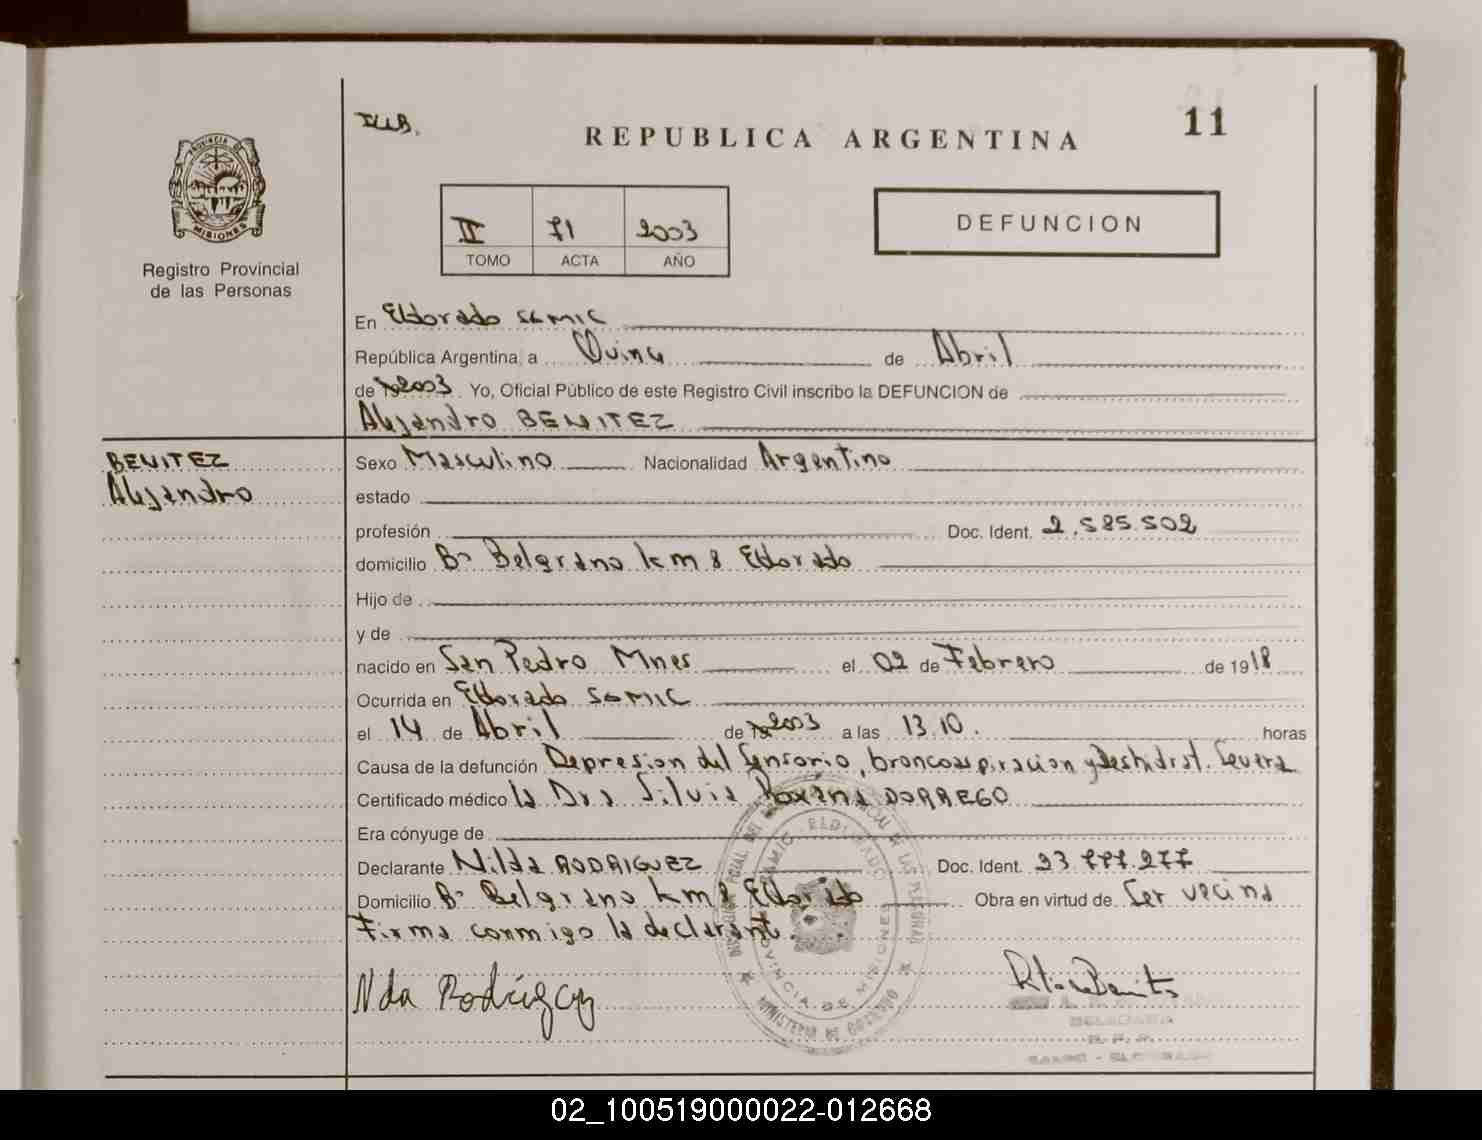 11
REPUBLICA ARGENTINA
PROVINCIA DE
MISIONES
Registro Provincial
de las Personas
II 71 2003
TOMO ACTA AÑO
DEFUNCION
En Eldorado SAMIC
República Argentina, a Quince de Abril
de 19 2003 Yo, Oficial Público de este Registro Civil inscribo la DEFUNCION de
Alejandro BENITEZ
BENITEZ
Alejandro
Sexo Masculino Nacionalidad Argentino
estado
profesión Doc. Ident. 2.585.502
domicilio Bº Belgrano km 8 Eldorado
Hijo de
y de
nacido en San Pedro Mnes el 02 de Febrero de 1918
Ocurrida en Eldorado SAMIC
el 14 de Abril de 19 2003 a las 13.10. horas
Causa de la defunción Depresion del Sensorio, broncoaspiracion y Deshidrat. Severa
Certificado médico la Dra Silvia Roxana DORREGO
Era cónyuge de
Declarante Nilda RODRIGUEZ Doc. Ident. 23.777.277
Domicilio Bº Belgrano km 8 Eldorado Obra en virtud de Ser vecina
Firma conmigo la declarante.
Nda Rodriguez
MINISTERIO DE GOBIERNO
PROVINCIA DE MISIONES
02_100519000022-012668